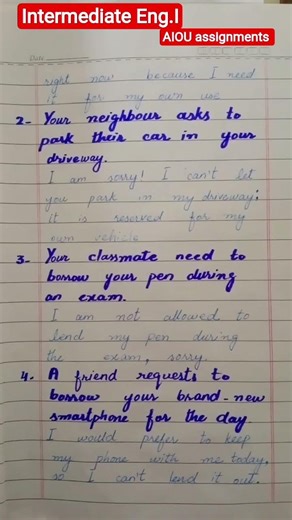 Intermediate Eng.I
AIOU assignments
Date
right now because I need
it for my own use
2- Your neighbour asks to
park their car in your
driveway.
I am sorry! I can't let
you park in my driveway;
it is reserved for my
own vehicle
3- Your classmate need to
borrow your pen during
an exam.
I am not allowed to
lend my pen during
the exam, sorry.
4- A friend requests to
borrow your brand-new
smartphone for the day
I would prefer to keep
my phone with me today,
so I can't lend it out.